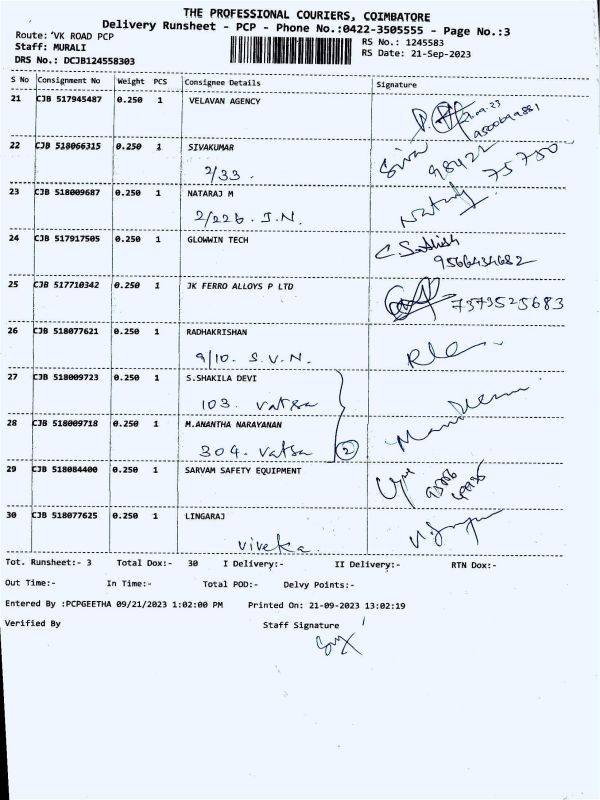 THE PROFESSIONAL COURIERS, COIMBATORE
Delivery Runsheet - PCP - Phone No.:0422-3505555 - Page No.:3
Route: 'VK ROAD PCP
RS No.: 1245583
Staff: MURALI
RS Date: 21-Sep-2023
DRS No.: DCJB124558303
S No Consignment No Weight PCS Consignee Details Signature
21 CJB 517945487 0.250 1 VELAVAN AGENCY
22 CJB 518066315 0.250 1 SIVAKUMAR
2/33. Siva
23 CJB 518009687 0.250 1 NATARAJ M
2/226. I.N. Nataraj
24 CJB 517917505 0.250 1 GLOWWIN TECH C Sathish
9566434682
25 CJB 517710342 0.250 1 JK FERRO ALLOYS P LTD 7373525683
26 CJB 518077621 0.250 1 RADHAKRISHAN
9/10. S.V.N.
27 CJB 518009723 0.250 1 S.SHAKILA DEVI
103. Vatsa
28 CJB 518009718 0.250 1 M.ANANTHA NARAYANAN
304. Vatsa 2
29 CJB 518084400 0.250 1 SARVAM SAFETY EQUIPMENT
30 CJB 518077625 0.250 1 LINGARAJ
viveka.
Tot. Runsheet:- 3 Total Dox:- 30 I Delivery:- II Delivery:- RTN Dox:-
Out Time:- In Time:- Total POD:- Delvy Points:-
Entered By :PCPGEETHA 09/21/2023 1:02:00 PM Printed On: 21-09-2023 13:02:19
Verified By Staff Signature